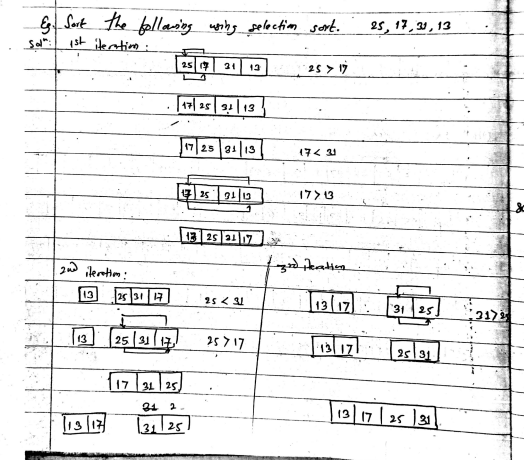 Eg. Sort the following using selection sort. 25, 17, 31, 13
Solⁿ: 1st iteration:
25 17 31 13 25 > 17
17 25 31 13
17 25 31 13 17 < 31
17 25 31 13 17 > 13
13 25 31 17
2nd iteration:
13 25 31 17 25 < 31
13 25 31 17 25 > 17
17 31 25
31 2
13 17 31 25
3rd iteration
13 17 31 25 31 > 25
13 17 25 31
13 17 25 31